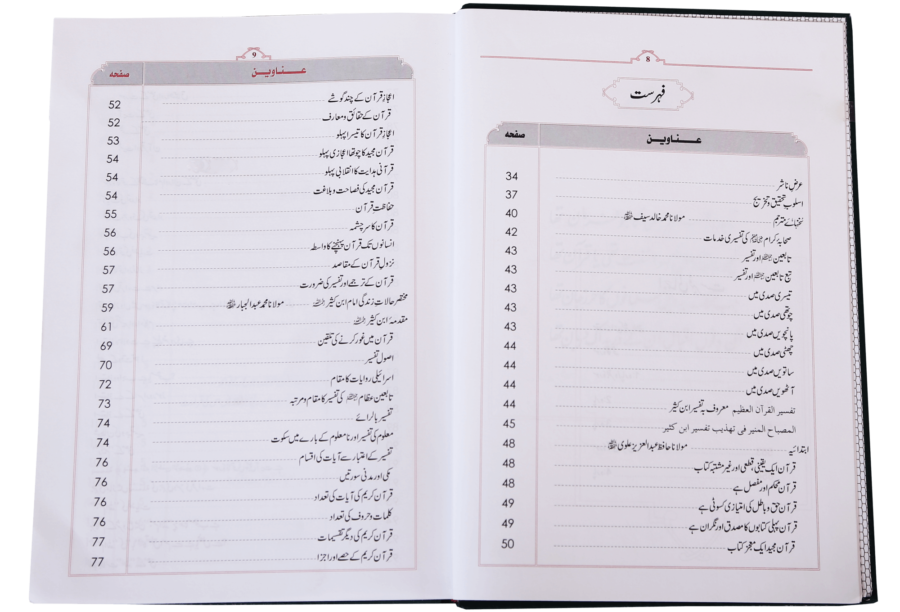 8
فہرست
عناوین صفحہ
عرض ناشر 34
اسلوب تحقیق و تخریج 37
سخنہائے مترجم مولانا محمد خالد سیف ﷾ 40
صحابۂ کرام ﷢ کی تفسیری خدمات 42
تابعین ﷭ اور تفسیر 43
تبع تابعین ﷭ اور تفسیر 43
تیسری صدی میں 43
چوتھی صدی میں 43
پانچویں صدی میں 43
چھٹی صدی میں 44
ساتویں صدی میں 44
آٹھویں صدی میں 44
تفسیر القرآن العظیم معروف بہ تفسیر ابن کثیر 44
المصباح المنیر فی تهذیب تفسیر ابن کثیر 45
ابتدائیہ مولانا حافظ عبدالعزیز علوی ﷾ 48
قرآن ایک یقینی، قطعی اور غیر مشتبہ کتاب 48
قرآن محکم اور مفصل ہے 48
قرآن حق و باطل کی امتیازی کسوٹی ہے 49
قرآن پہلی کتابوں کا مصدق اور نگران ہے 49
قرآن مجید ایک معجز کتاب 50
9
عناوین صفحہ
اعجاز قرآن کے چند گوشے 52
قرآن کے حقائق و معارف 52
اعجاز قرآن کا تیسرا پہلو 53
قرآن مجید کا چوتھا اعجازی پہلو 54
قرآنی ہدایت کا انقلابی پہلو 54
قرآن مجید کی فصاحت و بلاغت 54
حفاظت قرآن 55
قرآن کا سرچشمہ 56
انسانوں تک قرآن پہنچنے کا واسطہ 56
نزول قرآن کے مقاصد 57
قرآن کے ترجمے اور تفسیر کی ضرورت 57
مختصر حالات زندگی امام ابن کثیر ﷫ مولانا محمد عبدالجبار ﷾ 59
مقدمہ ابن کثیر ﷫ 61
قرآن میں غور کرنے کی تلقین 69
اصول تفسیر 70
اسرائیلی روایات کا مقام 72
تابعین عظام ﷭ کی تفسیر کا مقام و مرتبہ 73
تفسیر بالرائے 74
معلوم کی تفسیر اور نامعلوم کے بارے میں سکوت 74
تفسیر کے اعتبار سے آیات کی اقسام 76
مکی اور مدنی سورتیں 76
قرآن کریم کی آیات کی تعداد 76
کلمات و حروف کی تعداد 76
قرآن کریم کی دیگر تقسیمات 77
قرآن کریم کے حصے اور اجزا 77